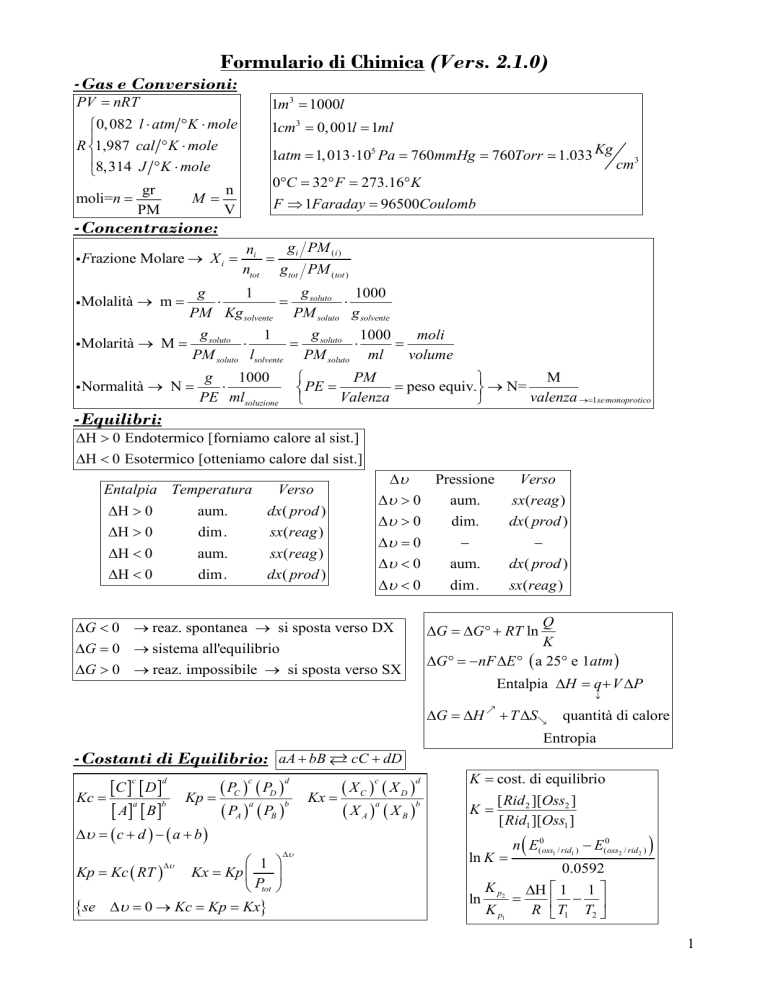 Formulario di Chimica (Vers. 2.1.0)
-Gas e Conversioni:
PV = nRT
R { 0,082 l·atm/°K·mole
1,987 cal/°K·mole
8,314 J/°K·mole
moli=n = gr/PM M = n/V
1m³ = 1000l
1cm³ = 0,001l = 1ml
1atm = 1,013·10⁵ Pa = 760mmHg = 760Torr = 1.033 Kg/cm³
0°C = 32°F = 273.16°K
F ⇒ 1Faraday = 96500Coulomb
-Concentrazione:
•Frazione Molare → Xᵢ = nᵢ/n_tot = (gᵢ/PM₍ᵢ₎)/(g_tot/PM_(tot))
•Molalità → m = g/PM · 1/Kg_solvente = g_soluto/PM_soluto · 1000/g_solvente
•Molarità → M = g_soluto/PM_soluto · 1/l_solvente = g_soluto/PM_soluto · 1000/ml = moli/volume
•Normalità → N = g/PE · 1000/ml_soluzione {PE = PM/Valenza = peso equiv.} → N= M/valenza →=1se monoprotico
-Equilibri:
ΔH > 0 Endotermico [forniamo calore al sist.]
ΔH < 0 Esotermico [otteniamo calore dal sist.]
Entalpia Temperatura Verso
ΔH > 0 aum. dx(prod)
ΔH > 0 dim. sx(reag)
ΔH < 0 aum. sx(reag)
ΔH < 0 dim. dx(prod)
Δυ Pressione Verso
Δυ > 0 aum. sx(reag)
Δυ > 0 dim. dx(prod)
Δυ = 0 − −
Δυ < 0 aum. dx(prod)
Δυ < 0 dim. sx(reag)
ΔG < 0 → reaz. spontanea → si sposta verso DX
ΔG = 0 → sistema all'equilibrio
ΔG > 0 → reaz. impossibile → si sposta verso SX
ΔG = ΔG° + RT ln Q/K
ΔG° = −nFΔE° (a 25° e 1atm)
Entalpia ΔH = q+VΔP
↓
ΔG = ΔH↗ + TΔS↘ quantità di calore
Entropia
-Costanti di Equilibrio: aA + bB ⇄ cC + dD
Kc = [C]^c [D]^d / [A]^a [B]^b Kp = (P_C)^c (P_D)^d / (P_A)^a (P_B)^b Kx = (X_C)^c (X_D)^d / (X_A)^a (X_B)^b
Δυ = (c + d) − (a + b)
Kp = Kc(RT)^Δυ Kx = Kp(1/P_tot)^Δυ
{se Δυ = 0 → Kc = Kp = Kx}
K = cost. di equilibrio
K = [Rid₂][Oss₂]/[Rid₁][Oss₁]
ln K = n(E⁰_(oss₁/rid₁) − E⁰_(oss₂/rid₂))/0.0592
ln K_p₂/K_p₁ = ΔH/R [1/T₁ − 1/T₂]
1